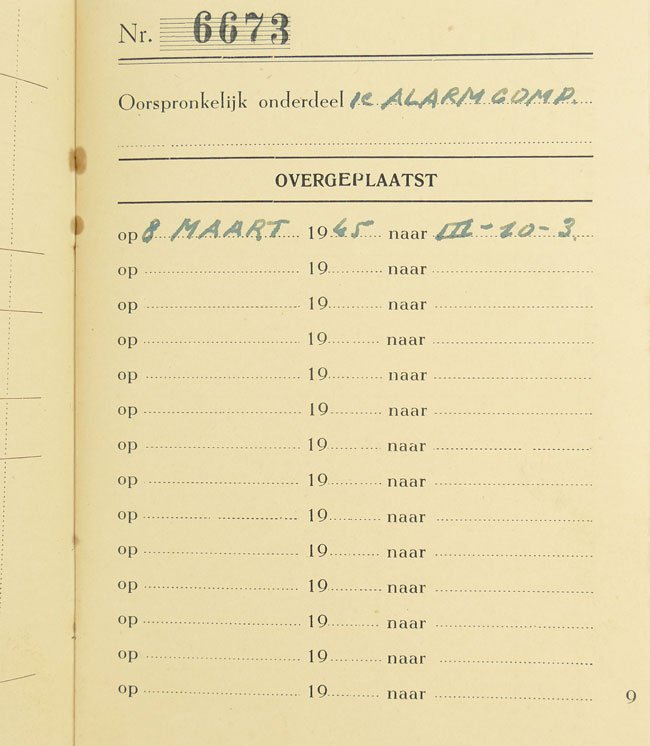 Nr. 6673
Oorspronkelijk onderdeel 1e ALARM COMP.
OVERGEPLAATST
op 8 MAART 1945 naar III-10-3.
op 19 naar
op 19 naar
op 19 naar
op 19 naar
op 19 naar
op 19 naar
op 19 naar
op 19 naar
op 19 naar
op 19 naar
op 19 naar
op 19 naar
op 19 naar
9